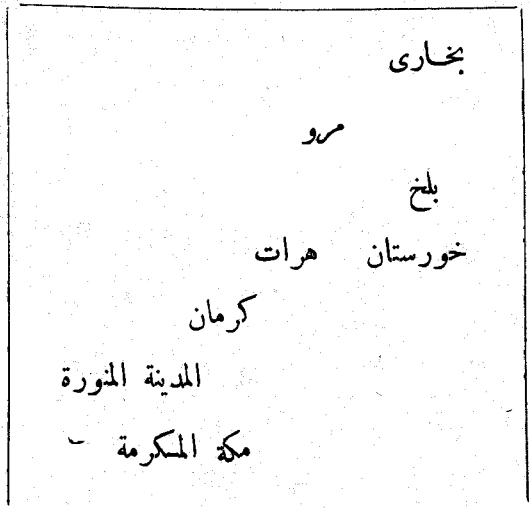 بخارى
مرو
بلخ
خورستان هرات
كرمان
المدينة المنورة
مكة المكرمة